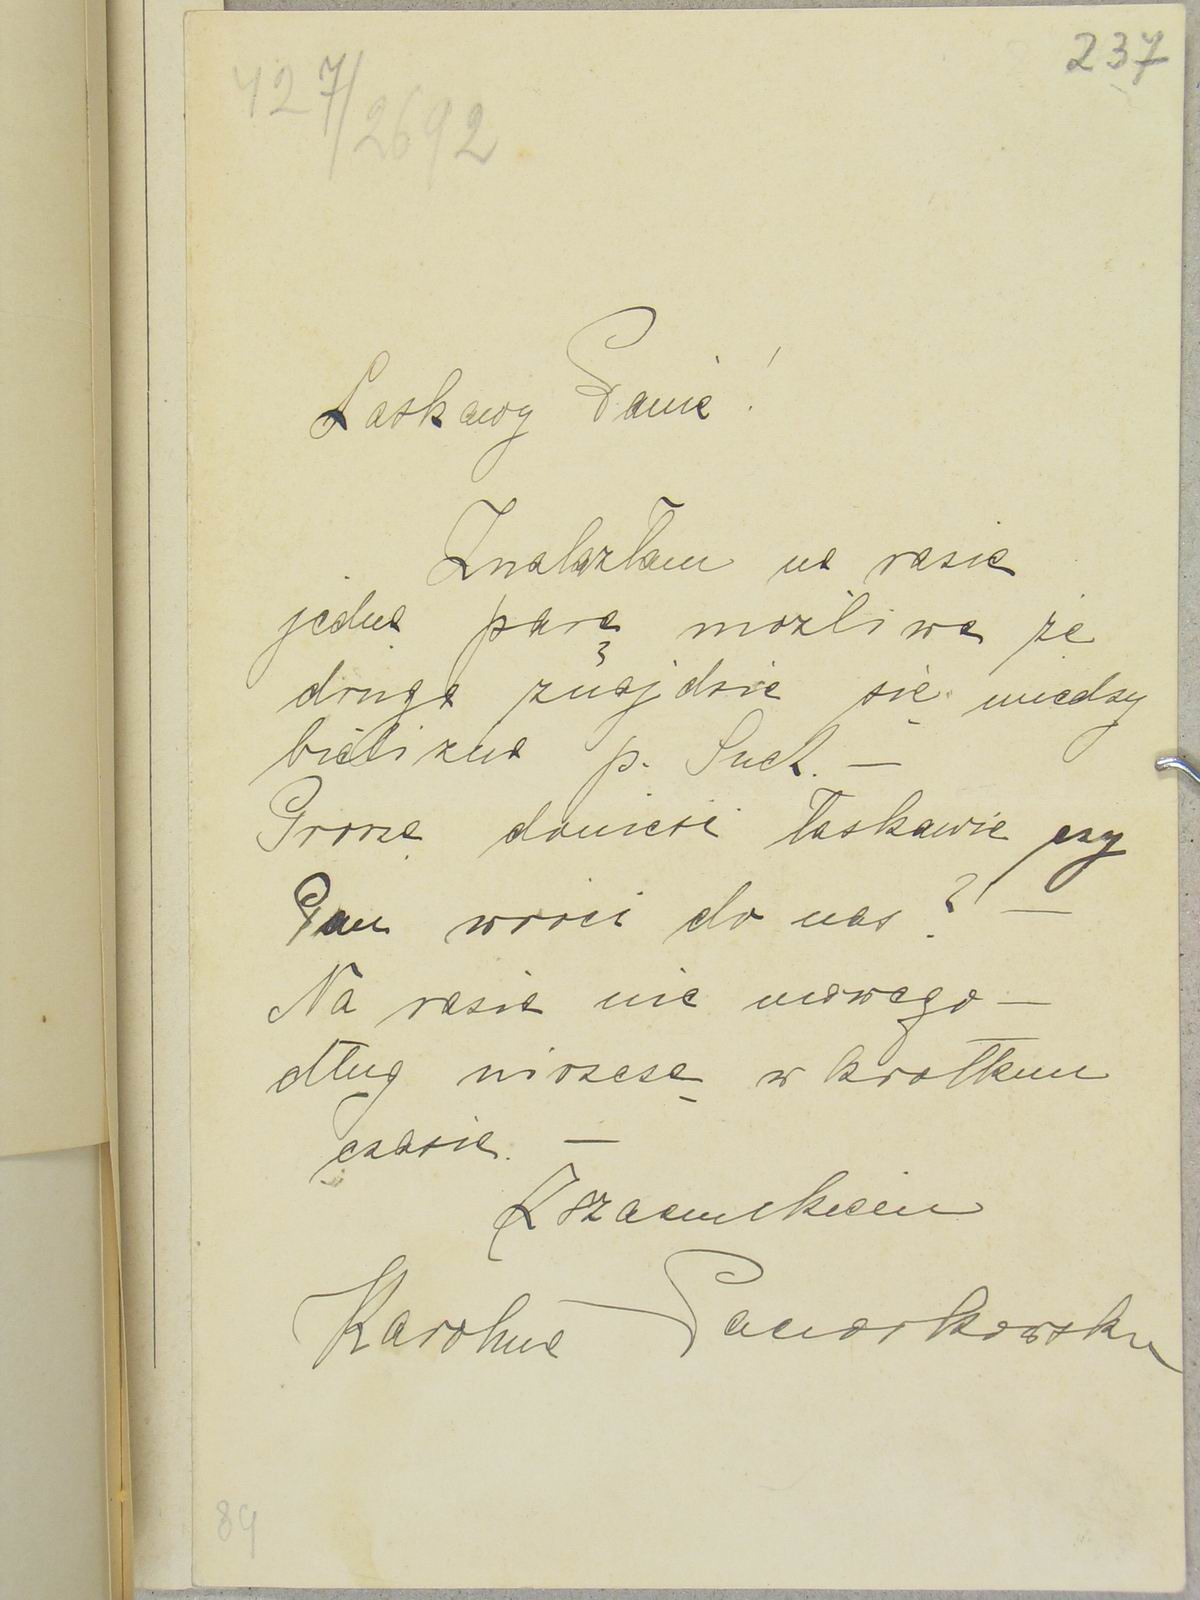 237
427/2692
Łaskawy Panie!
Znalazłam na razie
jedną parę możliwe że
druga znajdzie się między
bielizną p. Such. —
Proszę donieść łaskawie czy
Pan wróci do nas? —
Na razie nic nowego —
dług uiszczę w krótkim
czasie. —
Z szacunkiem
Karolina
89